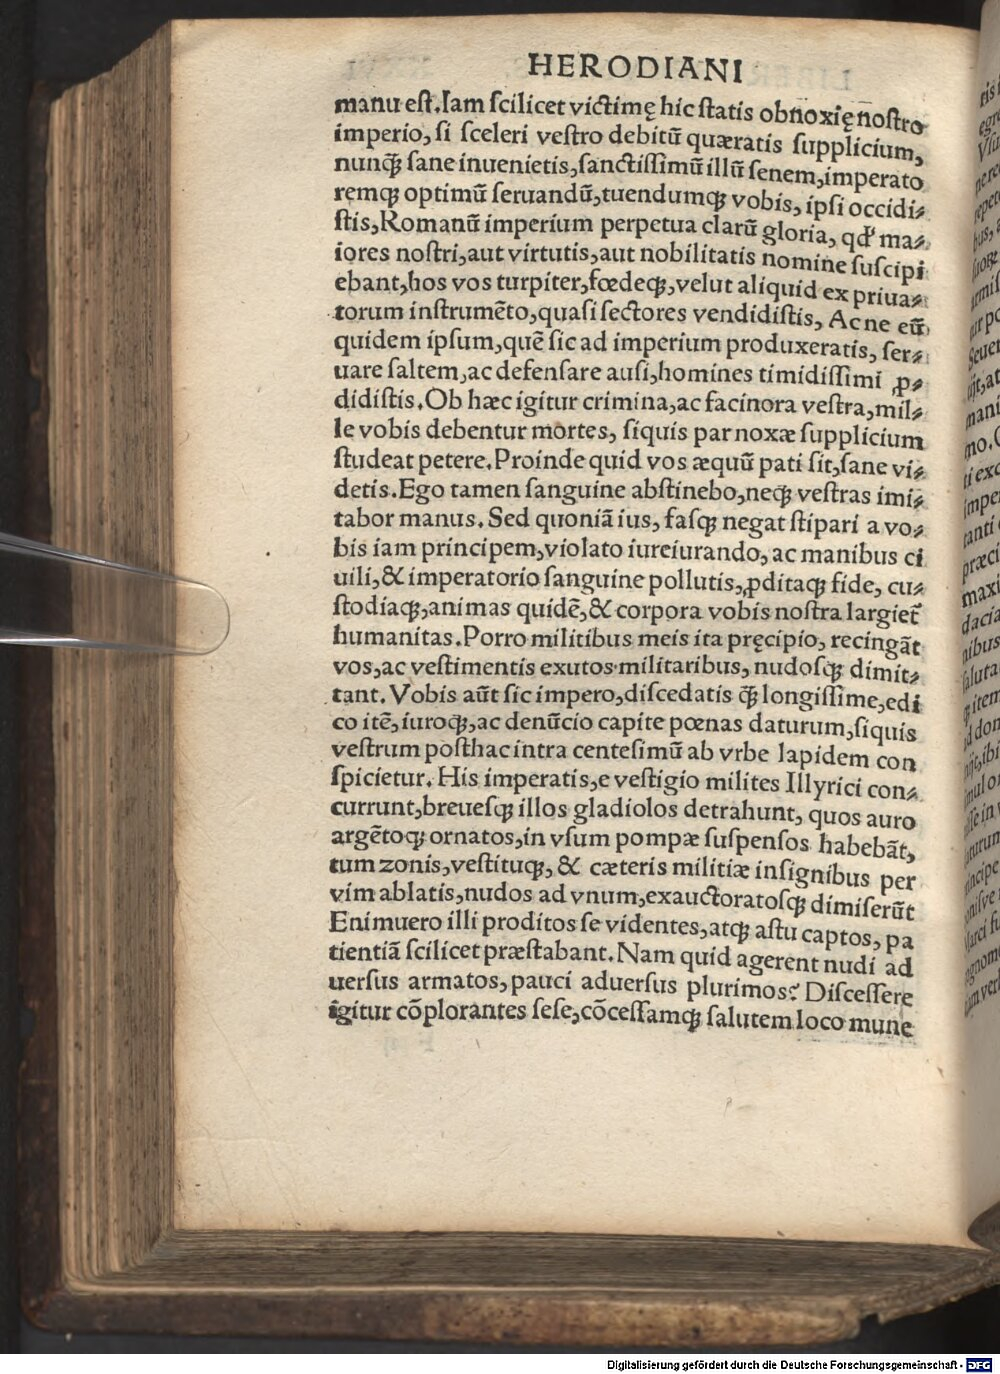 HERODIANI
manu est. Iam scilicet victimę hic statis obnoxię nr̄o
imperio, si sceleri vestro debitũ quæratis supplicium,
nunq̃ sane inuenietis, sanctissimũ illũ senem, imperato
remqꝫ optimũ seruandũ, tuendumqꝫ vobis, ipsi occidi⸗
stis, Romanũ imperium perpetua clarũ gloria, qđ ma⸗
iores nostri, aut virtutis, aut nobilitatis nomine suscipi
ebant, hos vos turpiter, fœdeqꝫ, velut aliquid ex priua⸗
torum instrumẽto, quasi sectores vendidistis, Ac ne eũ
quidem ipsum, quẽ sic ad imperium produxeratis, ser⸗
uare saltem, ac defensare ausi, homines timidissimi ꝓ⸗
didistis. Ob hæc igitur crimina, ac facinora vestra, mil⸗
le vobis debentur mortes, siquis par noxæ supplicium
studeat petere. Proinde quid vos æquũ pati sit, sane vi⸗
detis. Ego tamen sanguine abstinebo, neqꝫ vestras imi⸗
tabor manus. Sed quoniã ius, fasqꝫ negat stipari a vo⸗
bis iam principem, violato iureiurando, ac manibus ci
uili, & imperatorio sanguine pollutis, ꝓditaqꝫ fide, cu⸗
stodiaqꝫ, animas quidẽ, & corpora vobis nostra largiet᷑
humanitas. Porro militibus meis ita pręcipio, recingãt
vos, ac vestimentis exutos militaribus, nudosqꝫ dimit⸗
tant. Vobis aũt sic impero, discedatis q̃ longissime, edi
co itẽ, iuroqꝫ, ac denũcio capite pœnas daturum, siquis
vestrum posthac intra centesimũ ab vrbe lapidem con
spicietur. His imperatis, e vestigio milites Illyrici con⸗
currunt, breuesqꝫ illos gladiolos detrahunt, quos auro
argẽtoqꝫ ornatos, in vsum pompæ suspensos habebãt,
tum zonis, vestituqꝫ, & cæteris militiæ insignibus per
vim ablatis, nudos ad vnum, exauctoratosqꝫ dimiserũt
Enimuero illi proditos se videntes, atqꝫ astu captos, pa
tientiã scilicet præstabant. Nam quid agerent nudi ad
uersus armatos, pauci aduersus plurimos? Discessere
igitur cõplorantes sese, cõcessamqꝫ salutem loco mune
Digitalisierung gefördert durch die Deutsche Forschungsgemeinschaft - DFG